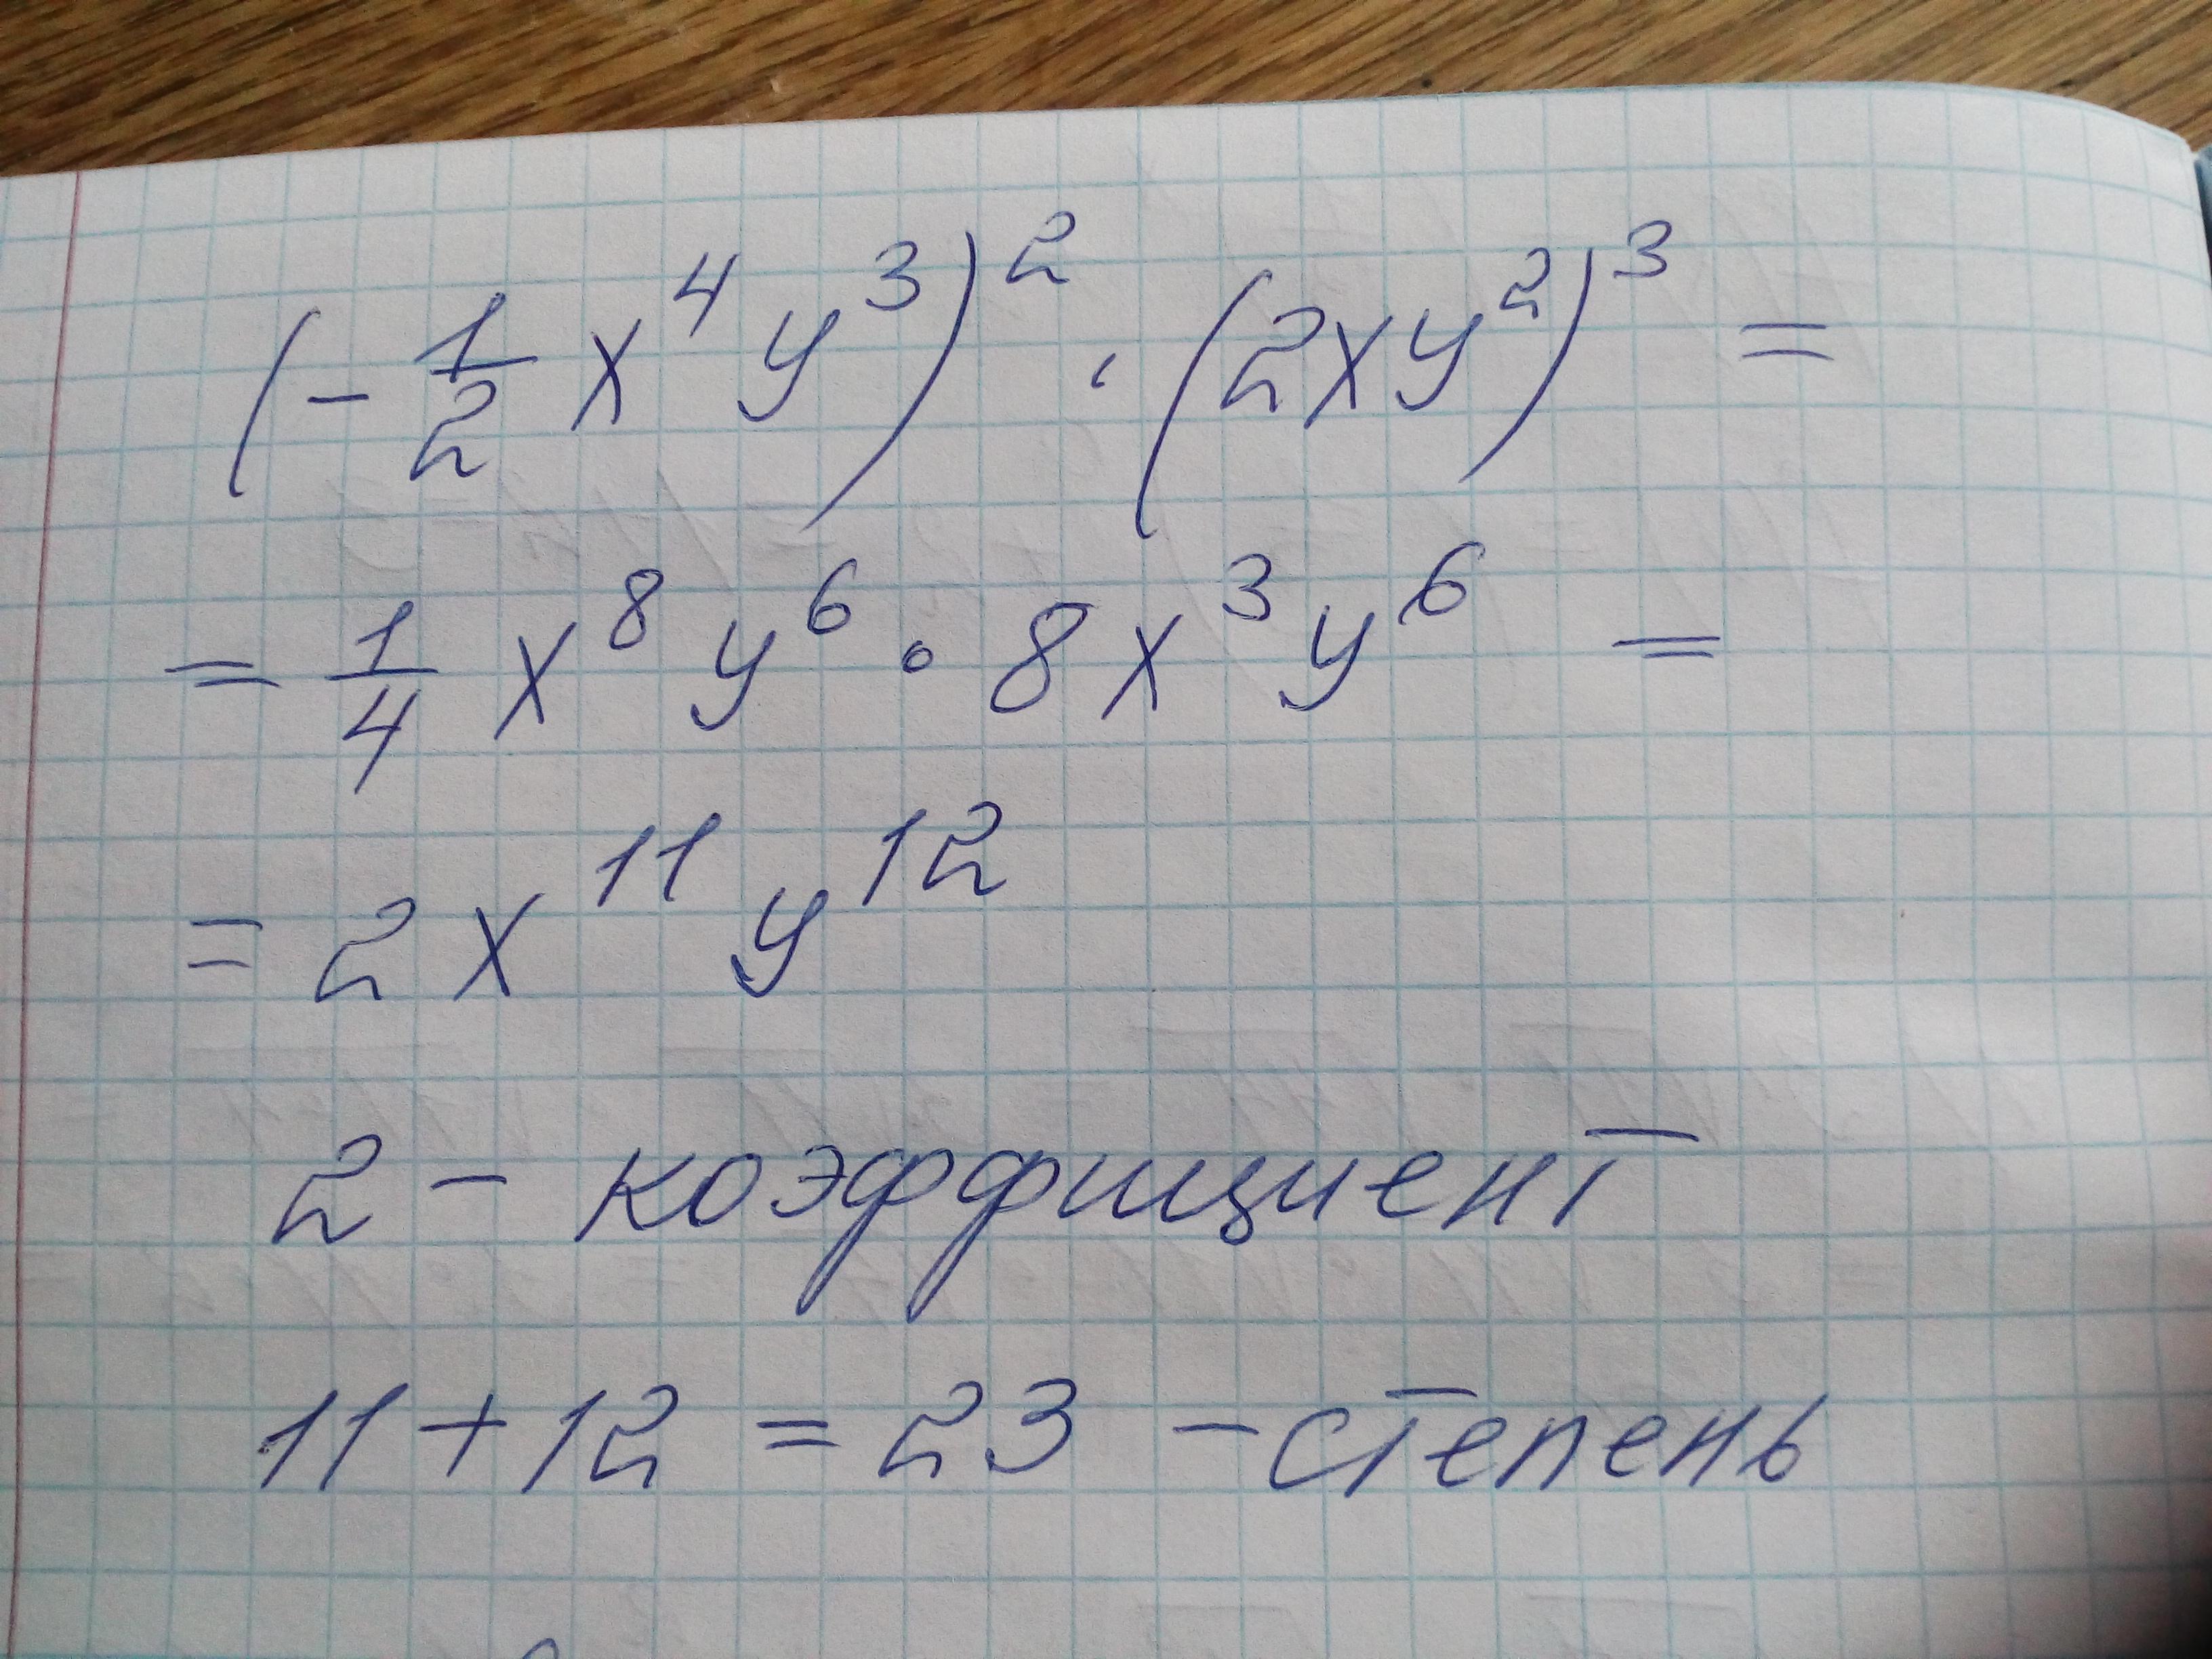 (-1/2 x⁴ y³)² · (2xy²)³ =
= 1/4 x⁸ y⁶ · 8x³y⁶ =
= 2x¹¹ y¹²
2 - коэффициент
11 + 12 = 23 - степень